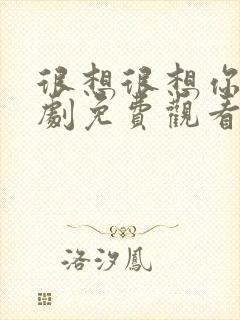 很想很想你
劇免費觀看
洛汐鳳